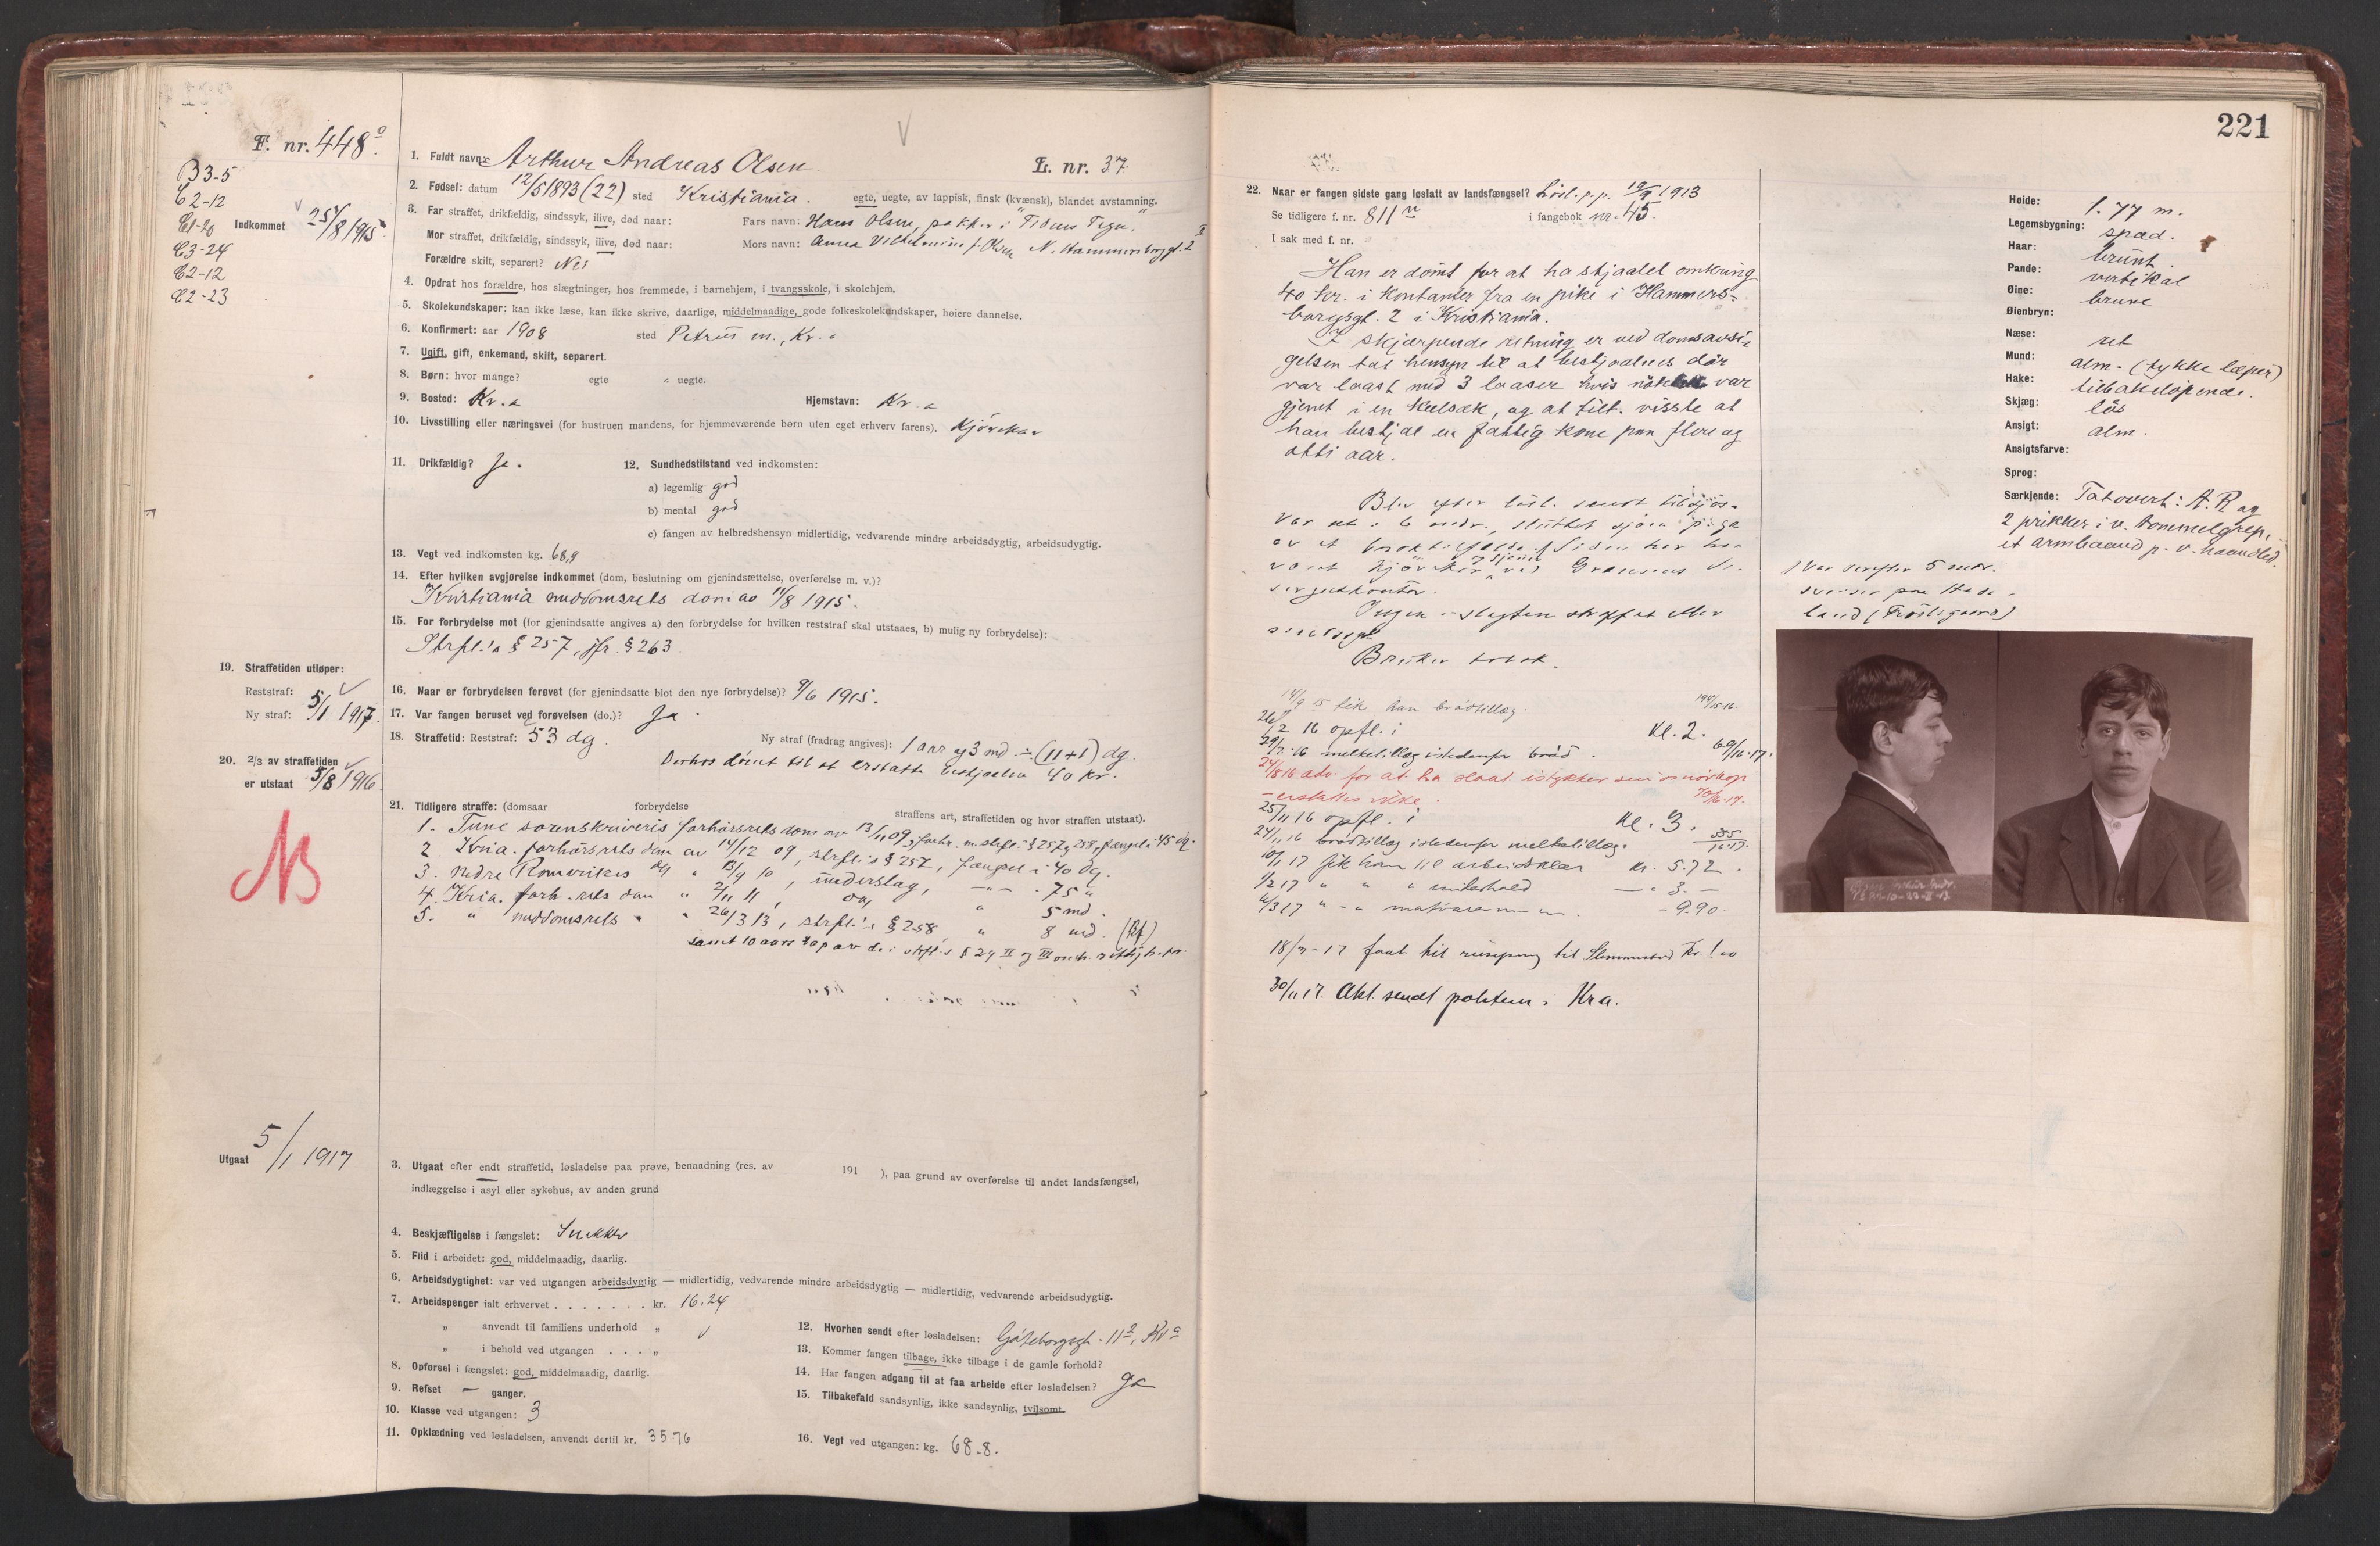 F. nr. 448
B3-5
C2-12
C1-20
C3-24
C2-12
C2-23
Indkommet 25/8 1915
1. Fuldt navn: Arthur Andreas Olsen
L. nr. 37
2. Fødsel: datum 12/5 1893 (22) sted Kristiania. egte, uegte, av lappisk, finsk (kvænsk), blandet avstamning.
3. Far straffet, drikfældig, sindssyk, ilive, død naar: Fars navn: Hans Olsen, pakker i "Tidens Tegn".
Mor straffet, drikfældig, sindssyk, ilive, død naar: Mors navn: Anna Vilhelmine f. Olsen N. Hammersborggt. 2
Forældre skilt, separert? Nei
4. Opdrat hos forældre, hos slægtninger, hos fremmede, i barnehjem, i tvangsskole, i skolehjem.
5. Skolekundskaper: kan ikke læse, kan ikke skrive, daarlige, middelmaadige, gode folkeskolekundskaper, høiere dannelse.
6. Konfirmert: aar 1908 sted Petrus m., Kr.a
7. Ugift, gift, enkemand, skilt, separert.
8. Børn: hvor mange? egte " uegte.
9. Bosted: Kr.a Hjemstavn: Kr.a
10. Livsstilling eller næringsvei (for hustruen mandens, for hjemmeværende børn uten eget erhverv farens). Kjørekar
11. Drikfældig? Ja.
12. Sundhedstilstand ved indkomsten:
a) legemlig god
b) mental god
c) fangen av helbredshensyn midlertidig, vedvarende mindre arbeidsdygtig, arbeidsudygtig.
13. Vegt ved indkomsten kg. 68,9
14. Efter hvilken avgjørelse indkommet (dom, beslutning om gjenindsættelse, overførelse m. v.)?
Kristiania meddomsrets dom av 11/8 1915.
15. For forbrydelse mot (for gjenindsatte angives a) den forbrydelse for hvilken reststraf skal utstaaes, b) mulig ny forbrydelse):
Strfl.s § 257, jfr. § 263.
16. Naar er forbrydelsen forøvet (for gjenindsatte blot den nye forbrydelse)? 9/6 1915.
17. Var fangen beruset ved forøvelsen (do.)? Ja.
18. Straffetid: Reststraf: 53 dg. Ny straf (fradrag angives): 1 aar og 3 md ÷ (11+1) dg.
Derhos dømt til at erstatte bestjaalen 40 kr.
19. Straffetiden utløper:
Reststraf:
Ny straf: 5/1 1917
20. 2/3 av straffetiden
er utstaat 5/8 1916
21. Tidligere straffe: (domsaar forbrydelse straffens art, straffetiden og hvor straffen utstaat).
1. Tune sorenskriveris forhørsrets dom av 13/11 09, forbr. m. strfl.s § 257 og 258, fængsel i 45 dg.
2. Kria. forhørsrets dom av 14/12 09, strfl.s § 257, fængsel i 40 dg.
3. Nedre Romerikes do, " 13/9 10, underslag, - " - 75 "
4. Kria. forh.rets dom " 2/11 11, do, " 5 md.
5. " meddomsrets " " 26/3 13, strfl.s § 258 " 8 md. (Bf)
samt 10 aars tap av de i strfl.s § 29 II og III
Utgaat 5/1 1917
3. Utgaat efter endt straffetid, løsladelse paa prøve, benaadning (res. av 191 ), paa grund av overførelse til andet landsfængsel,
indlæggelse i asyl eller sykehus, av anden grund
4. Beskjæftigelse i fængslet: Snekker
5. Flid i arbeidet: god, middelmaadig, daarlig.
6. Arbeidsdygtighet: var ved utgangen arbeidsdygtig — midlertidig, vedvarende mindre arbeidsdygtig — midlertidig, vedvarende arbeidsudygtig.
7. Arbeidspenger ialt erhvervet . . . . . . . kr. 16.24
" anvendt til familiens underhold "
" i behold ved utgangen . . . "
8. Opførsel i fængslet: god, middelmaadig, daarlig.
9. Refset — ganger.
10. Klasse ved utgangen: 3
11. Opklædning ved løsladelsen, anvendt dertil kr. 35.76
12. Hvorhen sendt efter løsladelsen: Gøteborggt. 11², Kra
13. Kommer fangen tilbage, ikke tilbage i de gamle forhold?
14. Har fangen adgang til at faa arbeide efter løsladelsen? Ja
15. Tilbakefald sandsynlig, ikke sandsynlig, tvilsomt.
16. Vegt ved utgangen: kg. 68.8.
221
22. Naar er fangen sidste gang løslatt av landsfængsel? Løsl. p.p. 19/9 1913
Se tidligere f. nr. 811 i fangebok nr. 45.
I sak med f. nr.
Han er dømt for at ha stjaalet omkring
40 kr. i kontanter fra en pike i Hammers-
borgsgt. 2 i Kristiania.
I skjærpende retning er ved domsavsi-
gelsen tat hensyn til at bestjaalnes dør
var laast med 3 laaser hvis nøkler var
gjemt i en kulsæk, og at tilt. visste at
han bestjal en fattig kone paa flere og
otti aar.
Blev efter løsl. sendt tilsjøs.
Var ut i 6 mdr., sluttet sjøen p. ga
av et benskade. Siden har han
været kjørekar ved Grænsens
Ingen i slegten straffet eller
sindssyk.
Bruker tobak.
14/9 15 fik han brødtillæg.
26/2 16 opfl. i Kl. 2.
29/2 16 melketillæg istedenfor brød.
24/8 16 adv. for at ha slaat istykker
- erstattes ikke.
25/11 16 opfl. i Kl. 3.
24/11 16 brødtillæg istedenfor melketillæg.
10/1 17 fik han til arbeidsklær kr. 5.72.
1/2 17 " " " underhold — " 3.—
6/3 17 " - " matvarer - 9.90.
18/7-17 faat hit reisepeng til Slemmestad Kr. 1.00
30/11 17. Akt. sendt politiet i Kra.
Høide: 1.77 m.
Legemsbygning: spæd.
Haar: brunt
Pande: vertikal
Øine: brune
Øienbryn:
Næse: ret
Mund: alm. (tykke læper)
Hake: tilbakeløpende.
Skjæg: løs
Ansigt: alm.
Ansigtsfarve:
Sprog:
Særkjende: Tatovert: A. R og
2 prikker i v. tommelgrep,
et armbaand p. v. haandled.
Var derefter 5 mdr.
sveiser paa Hade-
land